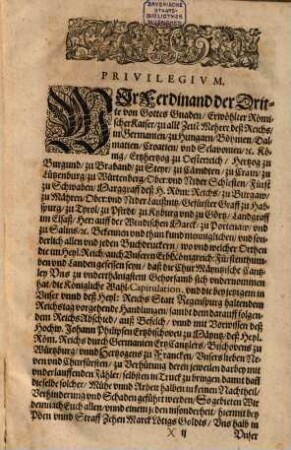 BAYERISCHE
STAATS-
BIBLIOTHEK
MUENCHEN
PRIVILEGIVM.
WJr Ferdinand der Drit-
te von Gottes Gnaden/ Erwöhlter Römi-
scher Kaiser/ zu allē Zeitē Mehrer deß Reichs/
in Germanien/ zu Hungarn/ Böhmen/ Dal-
matien/ Croatien/ und Sclavonien/ ꝛc. Kö-
nig/ Ertzhertzog zu Oesterreich/ Hertzog zu
Burgund/ zu Braband/ zu Steyr/ zu Cärndten/ zu Crain/ zu
Lützenburg/ zu Würtenberg/ Ober: und Nider Schlesien/ Fürst
zu Schwaben/ Marggraff deß H. Röm: Reichs/ zu Burgaw/
zu Mähren/ Ober: und Nider Laußnitz/ Gefürster Graff zu Hab-
spurg/ zu Tyrol/ zu Pfierdt/ zu Kyburg und zu Görtz/ Landgraff
im Elsaß/ Herr auff der Windischen Marck/ zu Portenaw/ und
zu Salins/ ꝛc. Bekennen und thun kund männiglichen/ und son-
derlich allen und jeden Buchdruckern/ wo und welcher Orthen
die im Heyl. Reich/ auch Unseren ErbKönigreich: Fürstenthum-
ben und Landen gesessen seyn/ daß die Chur Mäyntzische Cantz-
ley Uns zu underthänigstem Gehorsamb sich undernommen
hat/ die Königliche Wahl-Capitulation, und die heyenigen in
Unser und deß Heyl: Reichs Statt Regenspurg haltenden
Reichstag vorgehende Handlungen/ sambt dem darauff folgen-
dem ReichsAbschied/ auß Befelch/ und mit Vorwissen deß
Hochw. Johann Philipsen Ertzbischoven zu Mäyntz/ deß Heyl.
Röm. Reichs durch Germanien ErtzCantzlers/ Bischovens zu
Würtzburg/ und Hertzogens zu Francken/ Unsers lieben Ne-
ven und Churfürsten/ zu Verhütung deren jeweilen darbey mit
underlauffenden Fähler/ selbsten in Truck zu bringen/ damit dasß
dieselbe solcher/ Mühe und Arbeit halben in keinen Nachtheil/
Verhinderung und Schaden geführt werden/ So gebieten Wir
demnach Euch allen/ und einem jeden insonderheit/ hiermit bey
Pöen und Straff Zehen Marck lötigs Goldes/ Uns halb in
X ij
Unser